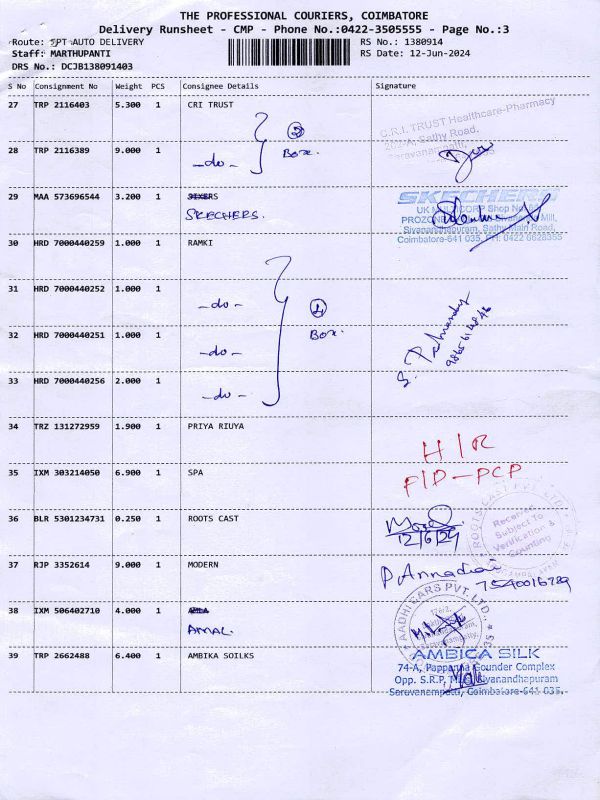 THE PROFESSIONAL COURIERS, COIMBATORE
Delivery Runsheet - CMP - Phone No.:0422-3505555 - Page No.:3
Route: TPT AUTO DELIVERY
RS No.: 1380914
Staff: MARTHUPANTI
RS Date: 12-Jun-2024
DRS No.: DCJB138091403
S No Consignment No Weight PCS Consignee Details Signature
27 TRP 2116403 5.300 1 CRI TRUST
C.R.I. TRUST Healthcare-Pharmacy
202-A, Sathy Road,
Saravanampatti,
② Box.
28 TRP 2116389 9.000 1 -do-
29 MAA 573696544 3.200 1
SKECHERS.
SKECHERS
Sivanandhapuram, Sathy Main Road,
Coimbatore-641 035, PH: 0422 6628355
30 HRD 7000440259 1.000 1 RAMKI
31 HRD 7000440252 1.000 1 -do-
④ Box.
32 HRD 7000440251 1.000 1 -do-
33 HRD 7000440256 2.000 1 -do-
34 TRZ 131272959 1.900 1 PRIYA RIUYA
H/R
35 IXM 303214050 6.900 1 SPA
F/D-PCP
36 BLR 5301234731 0.250 1 ROOTS CAST
12/6/24
Received
Subject To
Verification &
Counting
37 RJP 3352614 9.000 1 MODERN
P Annadurai
38 IXM 506402710 4.000 1
AMAL.
AADHI CARS PVT. LTD.,
39 TRP 2662488 6.400 1 AMBIKA SOILKS
AMBICA SILK
74-A, Pappanna Gounder Complex
Opp. S.R.P. Mill, Sivanandhapuram
Saravanampatti, Coimbatore-641 035.